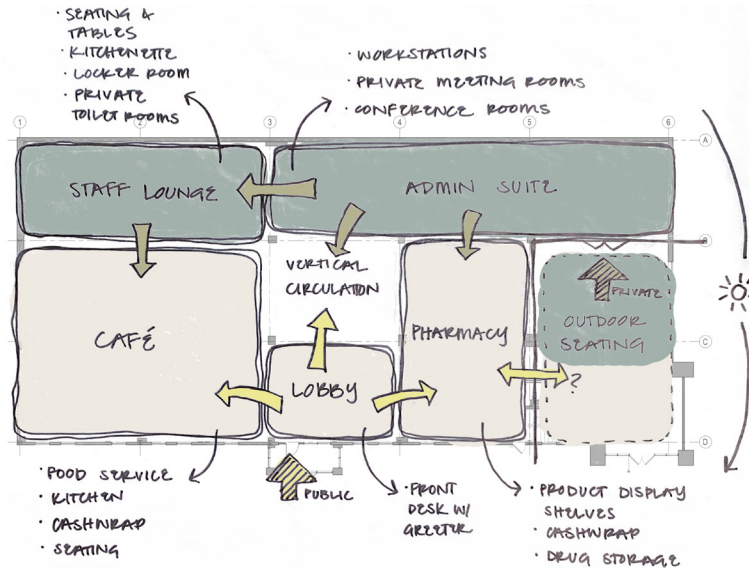 · SEATING &
TABLES
· KITCHENETTE
· LOCKER ROOM
· PRIVATE
TOILET ROOMS
· WORKSTATIONS
· PRIVATE MEETING ROOMS
· CONFERENCE ROOMS
1 2 3 4 5 6
A
STAFF LOUNGE
ADMIN SUITE
B
VERTICAL
CIRCULATION
PRIVATE
OUTDOOR
SEATING
CAFÉ
PHARMACY
C
LOBBY
?
D
PUBLIC
· FOOD SERVICE
· KITCHEN
· CASHWRAP
· SEATING
· FRONT
DESK W/
GREETER
· PRODUCT DISPLAY
SHELVES
· CASHWRAP
· DRUG STORAGE